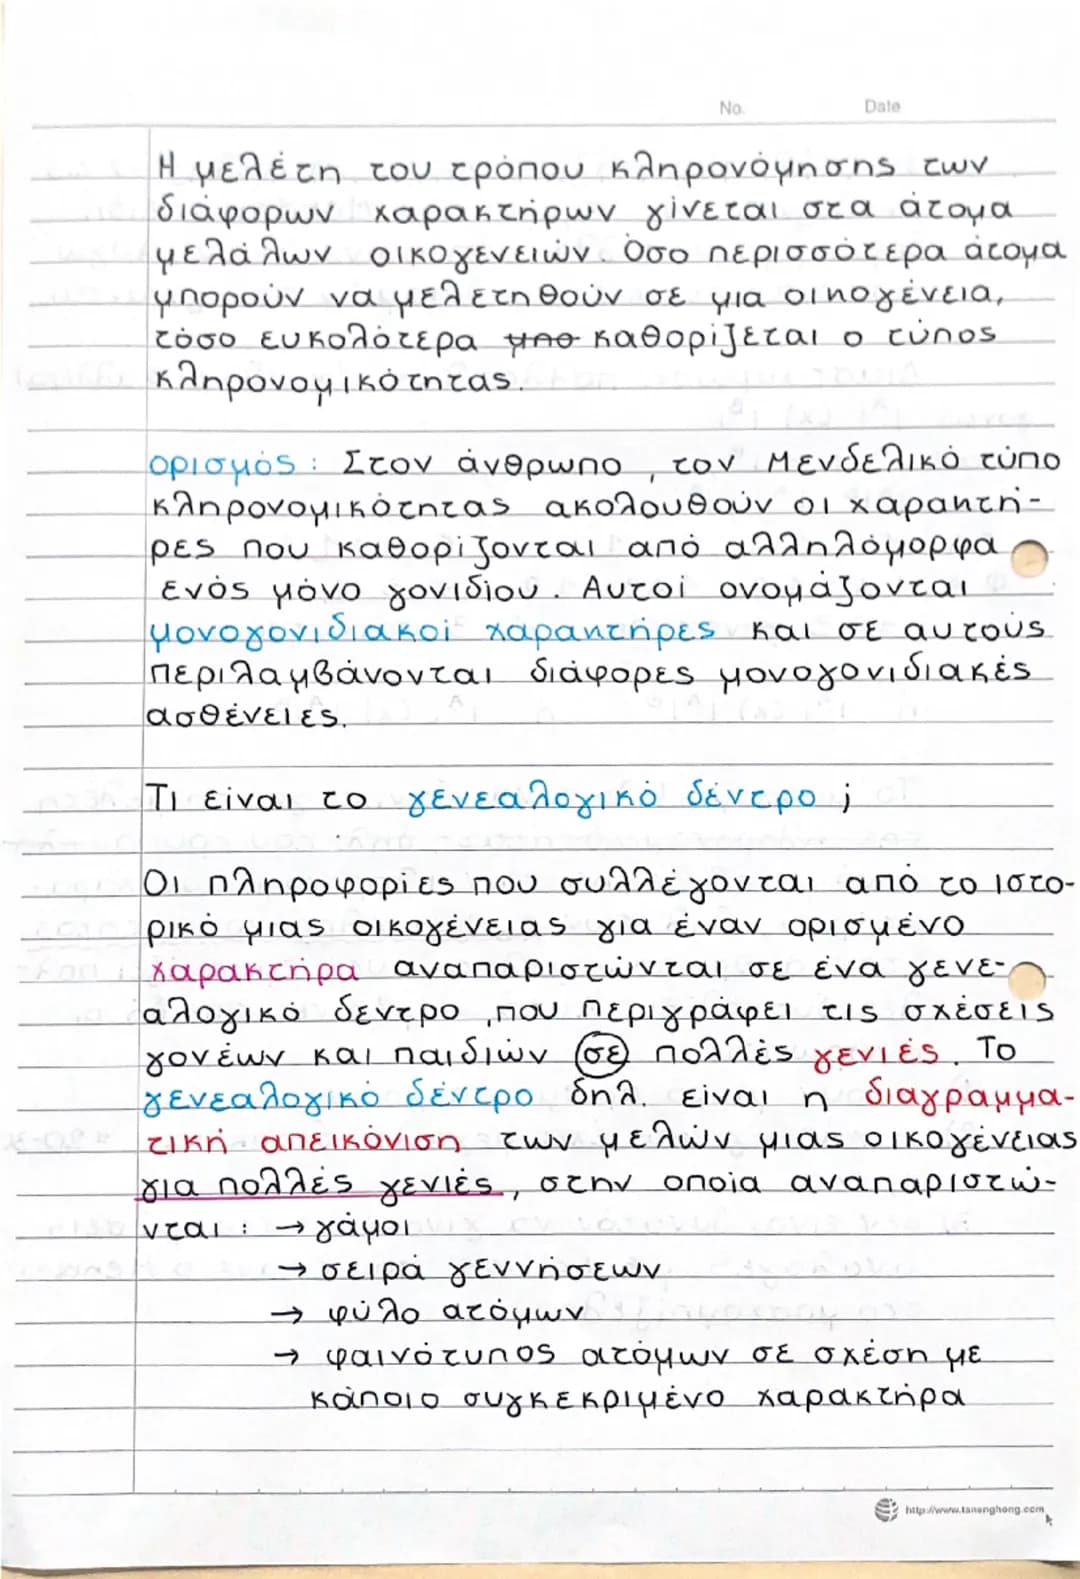 No. Date
Η μελέτη του τρόπου κληρονόμησης των
διάφορων χαρακτήρων γίνεται στα άτομα
μεγάλων οικογενειών. Όσο περισσότερα άτομα
μπορούν να μελετηθούν σε μια οικογένεια,
τόσο ευκολότερα καθορίζεται ο τύπος
κληρονομικότητας.
ορισμός: Στον άνθρωπο, τον Μενδελικό τύπο
κληρονομικότητας ακολουθούν οι χαρακτή-
ρες που καθορίζονται από αλληλόμορφα
ενός μόνο γονιδίου. Αυτοί ονομάζονται
μονογονιδιακοί χαρακτήρες και σε αυτούς
περιλαμβάνονται διάφορες μονογονιδιακές
ασθένειες.
Τι είναι το γενεαλογικό δέντρο;
Οι πληροφορίες που συλλέγονται από το ιστο-
ρικό μιας οικογένειας για έναν ορισμένο
χαρακτήρα αναπαριστώνται σε ένα γενε-
αλογικό δεντρο, που περιγράφει τις σχέσεις
γονέων και παιδιών σε πολλές γενιές. Το
γενεαλογικό δέντρο δηλ. είναι η διαγραμμα-
τική απεικόνιση των μελών μιας οικογένειας
για πολλές γενιές, στην οποία αναπαριστώ-
νται: → γάμοι
→ σειρά γεννήσεων
→ φύλο ατόμων
→ φαινότυπος ατόμων σε σχέση με
κάποιο συγκεκριμένο χαρακτήρα
http://www.tananghong.com